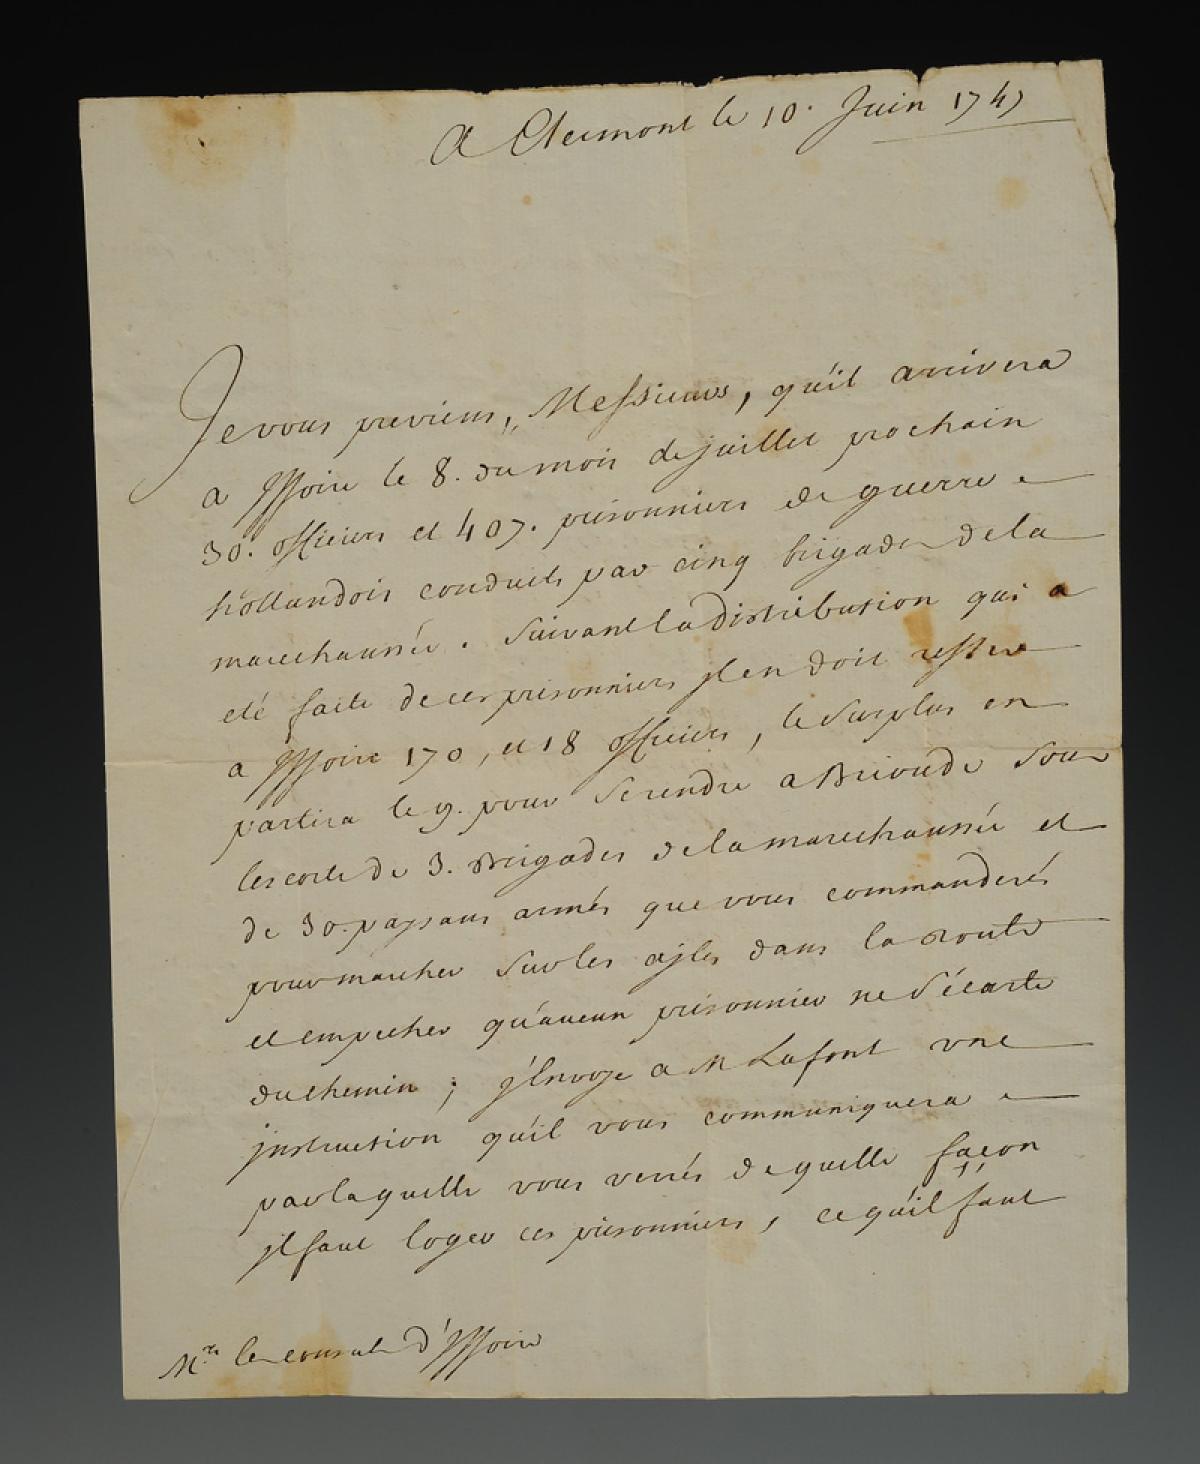 A Clermont le 10. Juin 1747
Je vous previens, Messieurs, qu'il arrivera
a Jssoire le 8. du mois de juillet prochain
30. officiers et 407. prisonniers de guerre
hollandois conduits par cinq brigades de la
marechaussée. Suivant la distribution qui a
eté faite de ces prisonniers jl en doit rester
a Jssoire 170, et 18 officiers, le surplus en
partira le 9. pour se rendre a Brioude sous
lescorte de 3. Brigades de la marechaussée et
de 30. paysans armés que vous commanderés
pour marcher sur les ajles dans la route
et empecher qu'aucun prisonnier ne s'écarte
du chemin; j'Envoye a M Lafont une
jnstruction qu'il vous communiquera
par laquelle vous verrés de quelle façon
jl faut loger ces prisonniers, ce qu'il faut
Mrs les consuls d'Jssoire